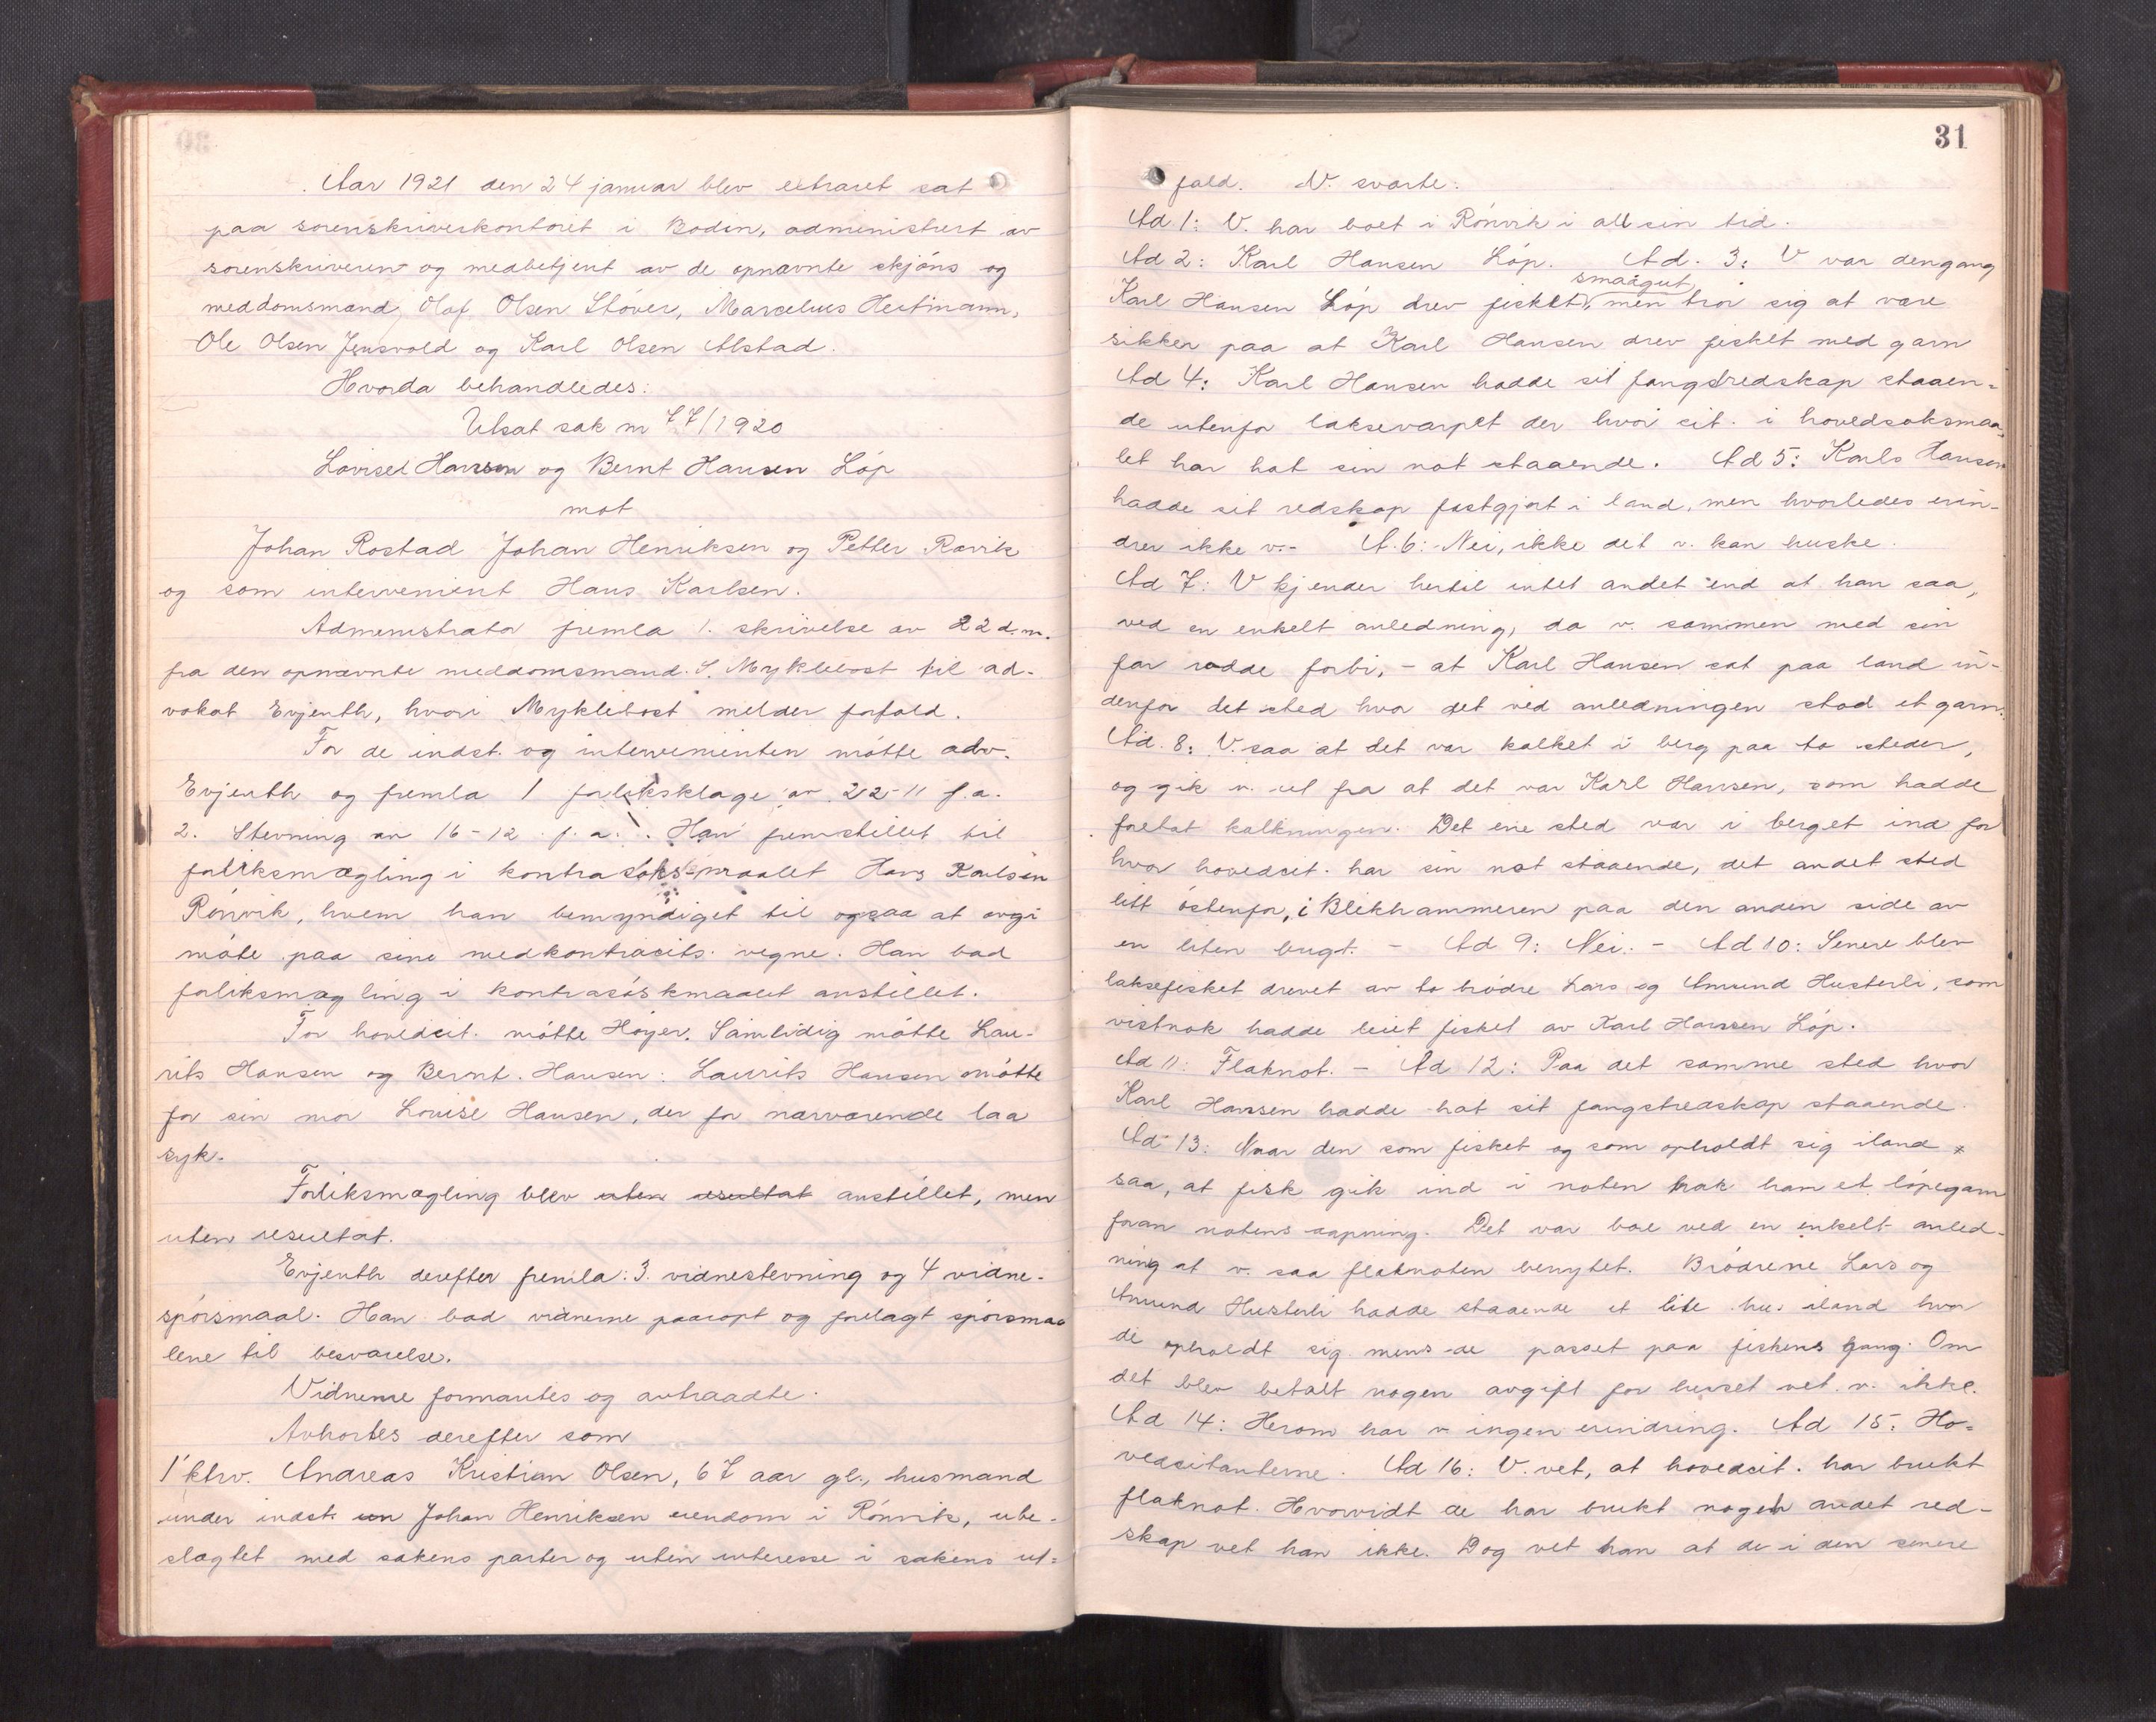 Aar 1921 den 24 januar blev extraret sat
paa sorenskriverkontoret i Bodin, administrert av
sorenskriveren og medbetjent av de opnævnte skjöns og
meddomsmænd, Olaf Olsen Stöver, Marcelius Hertmann,
Ole Olsen Jensvold og Karl Olsen Alstad.
Hvorda behandledes:
Utsat sak nr 77/1920
Lovise Hansen og Bernt Hansen Löp
mot
Johan Rostad Johan Henriksen og Petter Rævik
og som intervenient Hans Karlsen.
Administrator fremla 1. skrivelse av 22 d.m.
fra den opnævnte meddomsmand S. Myklebost til ad-
vokat Evjenth, hvori Myklebost melder forfald.
For de indst. og intervenienten mötte adv.
Evjenth og fremla 1 forliksklage av 22-11 f.a.
2. Stevning av 16-12 f.a. Han fremstillet til
forliksmægling i kontrasöksmaalet Hans Karlsen
Rönvik, hvem han bemyndiget til ogsaa at avgi
möte paa sine medkontracits. vegne. Han bad
forliksmægling i kontrasöksmaalet anstillet.
For hovedcit. mötte Höyer. Samtidig mötte Lau-
rits Hansen og Bernt Hansen: Laurits Hansen mötte
for sin mor Lovise Hansen, der for nærværende laa
syk.
Forliksmægling blev uten resultat anstillet, men
uten resultat.
Evjenth derefter fremla: 3. vidnestevning og 4 vidne-
spörsmaal. Han bad vidnerne paaropt og forelagt spörsmaa
lene til besvarelse.
Vidnerne formantes og avtraadte.
Avhörtes derefter som
1' ktrv. Andreas Kristian Olsen, 67 aar gl., husmand
under indst. Johan Henriksen eiendom i Rönvik, ube-
slægtet med sakens parter og uten interesse i sakens ut=
31
fald. V. svarte:
Ad 1: V. har boet i Rönvik i all sin tid.
Ad 2: Karl Hansen Löp. Ad. 3: V var dengang
smaagut,
Karl Hansen Löp drev fisket, men tror sig at være
sikker paa at Karl Hansen drev fisket med garn
Ad 4: Karl Hansen hadde sit fangstredskap staaen=
de utenfor laksevarpet der hvor cit. i hovedsöksmaa-
let har hat sin not staaende. Ad 5: Karls Hansen
hadde sit redskap fastgjort i land, men hvorledes erin-
drer ikke v.- A. 6: Nei, ikke det v. kan huske.
Ad 7: V kjender hertil intet andet end at han saa,
ved en enkelt anledning, da v. sammen med sin
far rodde forbi, - at Karl Hansen sat paa land in-
denfor det sted hvor det ved anledningen stod et garn.
Ad. 8: V. saa at det var kalket i berg paa to steder,
og gik v. ut fra at det var Karl Hansen, som hadde
foretat kalkningen. Det ene sted var i berget ind for
hvor hovedcit. har sin not staaende, det andet sted
litt östenfor, i Blikhammeren paa den anden side av
en liten bugt. - Ad 9: Nei. - Ad 10: Senere blev
laksefisket drevet av to brödre Lars og Amund Husterli, som
vistnok hadde leiet fisket av Karl Hansen Löp.
Ad 11: Flaknot. - Ad 12: Paa det samme sted hvor
Karl Hansen hadde hat sit fangstredskap staaende.
Ad 13: Naar den som fisket og som opholdt sig iland
saa, at fisk gik ind i noten trak han et löpegarn
foran notens aapning. Det var bare ved en enkelt anled-
ning at v. saa flaknoten benyttet. Brödrene Lars og
Amund Husterli hadde staaende et lite hus iland hvor
de opholdt sig mens de passet paa fiskens gang. Om
det blev betalt nogen avgift for huset vet v. ikke.
Ad 14: Herom har v ingen erindring. Ad 15: Ho=
vedcitanterne. Ad 16: V. vet, at hovedcit. har brukt
flaknot. Hvorvidt de har brukt nogen andet red-
skap vet han ikke. Dog vet han at de i den senere